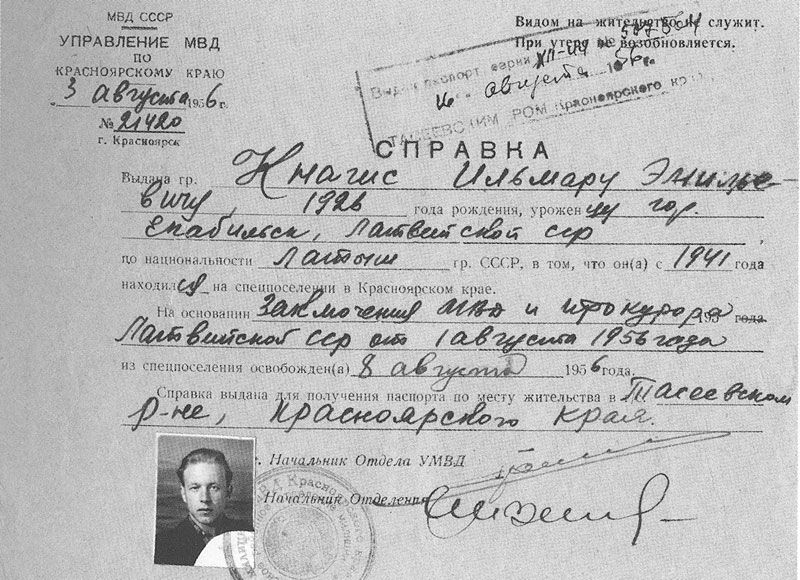 МВД СССР
УПРАВЛЕНИЕ МВД
ПО
КРАСНОЯРСКОМУ КРАЮ
3 августа 1956 г.
№ 21420
г. Красноярск
Видом на жительство не служит.
При утере не возобновляется.
Выдан паспорт серии
августа
ТАСЕЕВСКИМ РОМ Красноярского
СПРАВКА
Выдана гр. Кнагис Ильмару Эмилье-
вичу, 1926 года рождения, урожен цу гор.
Екабпильск, Латвийской сср,
по национальности латыш гр. СССР, в том, что он(а) с 1941 года
находился на спецпоселении в Красноярском крае.
На основании Заключения МВД и прокурора 195 года
Латвийской сср от 1 августа 1956 года
из спецпоселения освобожден(а) 8 августа 1956 года.
Справка выдана для получения паспорта по месту жительства в Тасеевском
р-не, Красноярского края.
Начальник Отдела УМВД
Начальник Отделения